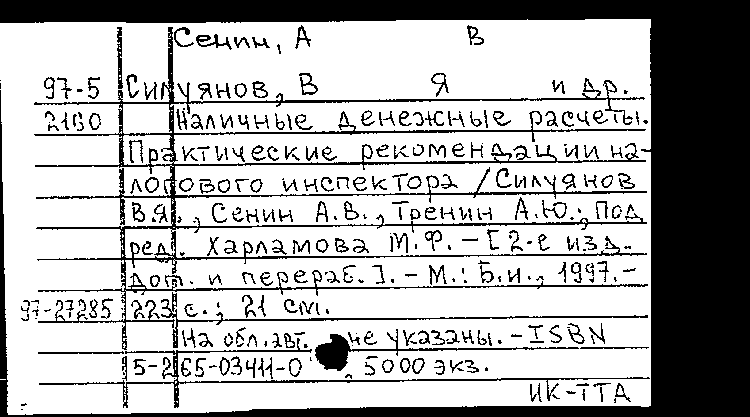 Сенин, А В
97-5 Силуянов, В Я и др.
2160 Наличные денежные расчеты.
Практические рекомендации на-
логового инспектора / Силуянов
В.Я., Сенин А.В., Тренин А.Ю.; Под
ред. Харламова М.Ф. - [2-е изд.
доп. и перераб.]. - М.: Б.и., 1997. -
97-27285 223 с.; 21 см.
На обл. авт. не указаны. - ISBN
5-265-03411-0 , 5000 экз.
ИК-ТТА